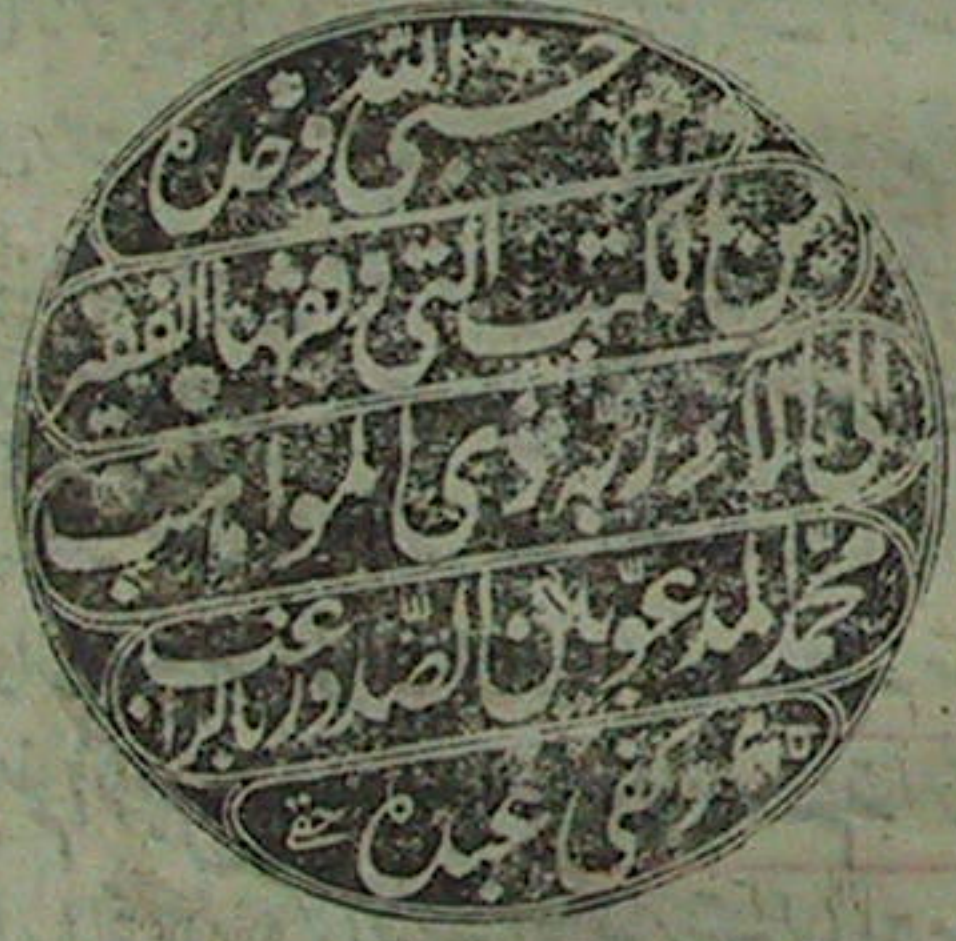 حسبي الله وحده
من الكتب التي وقفها الفقير
إلى آلاء ربه ذي المواهب
محمد المدعو بين الصدور بالراغب
وكفى عبده حقي